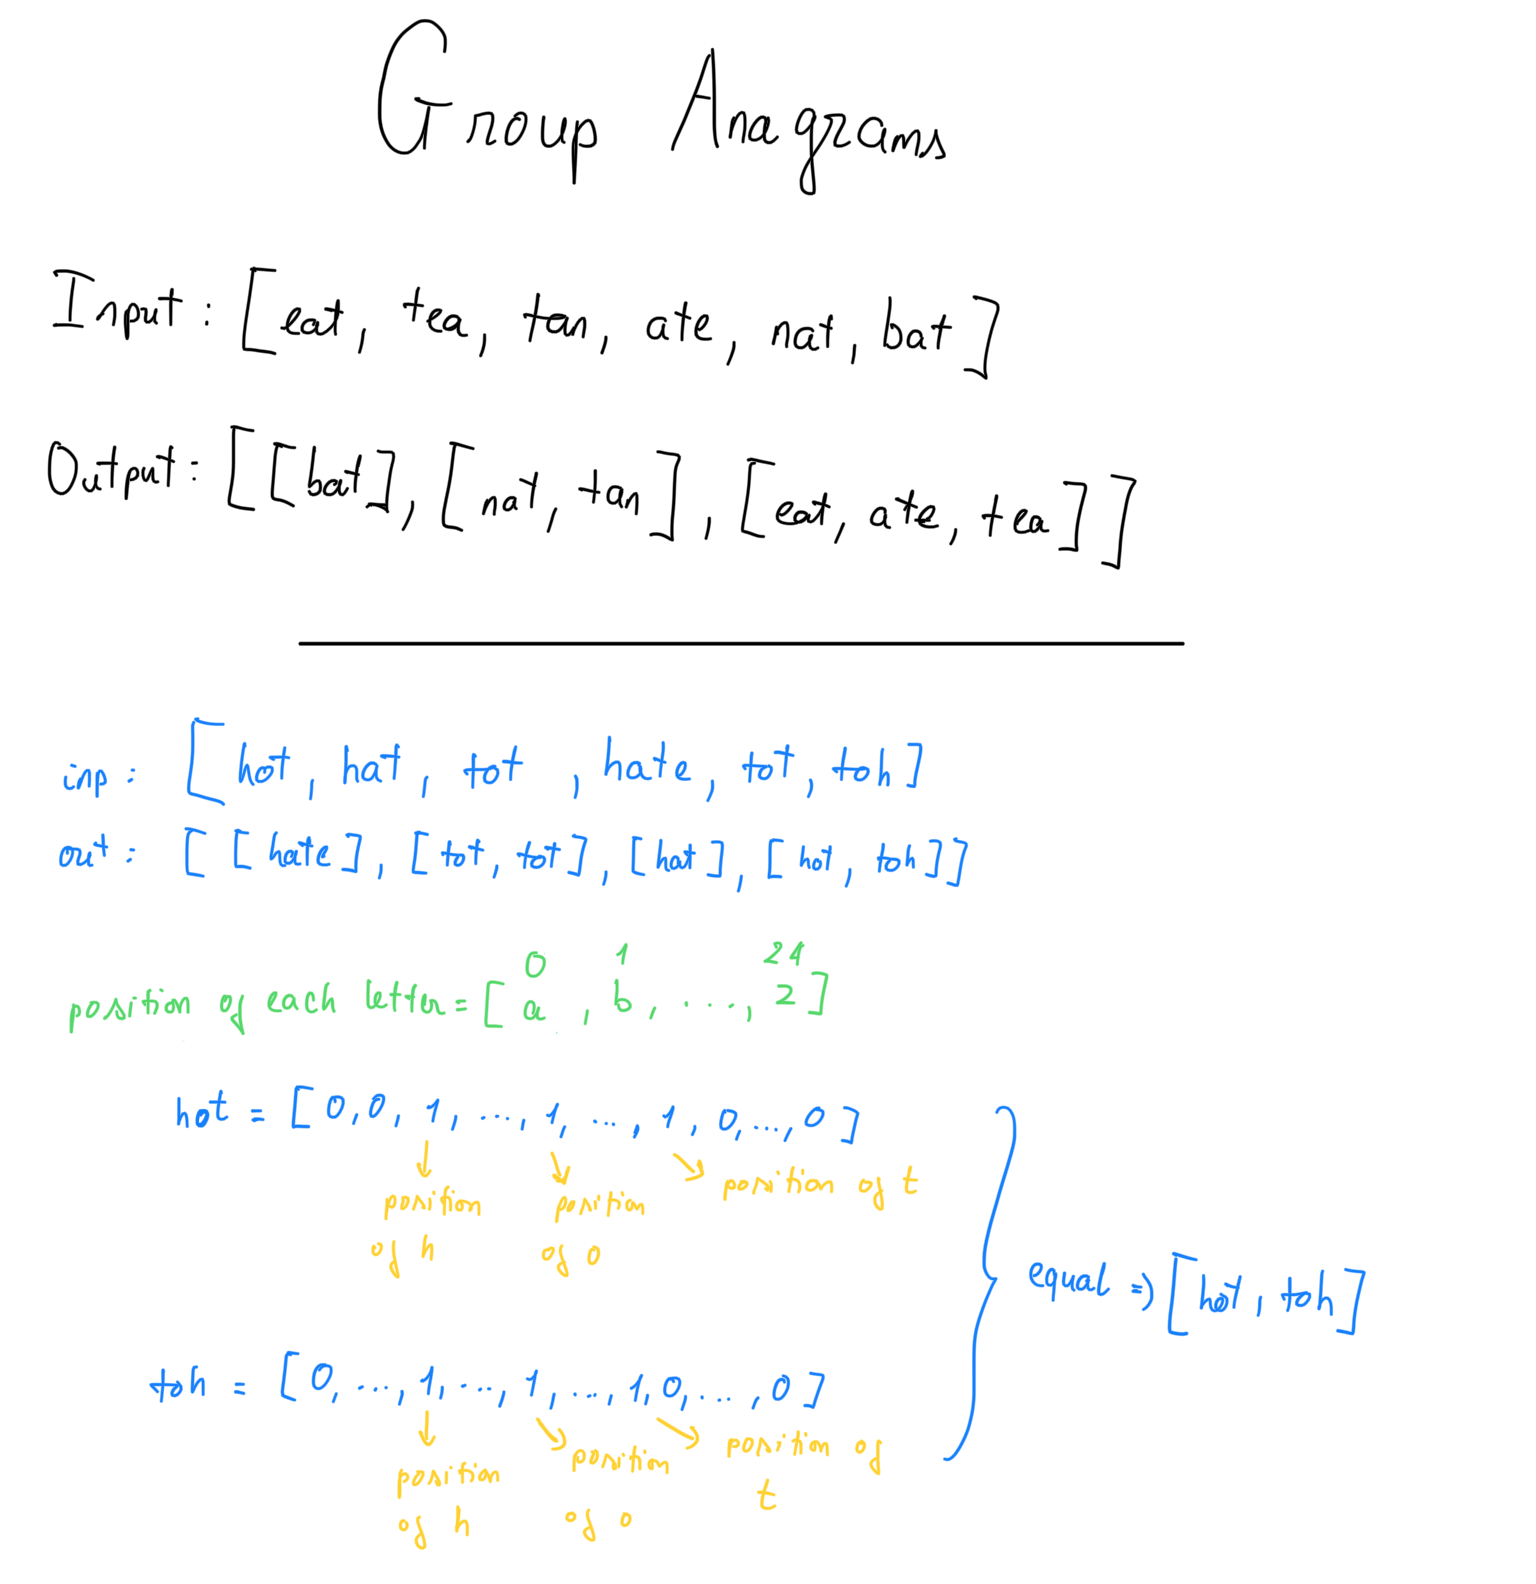 Group Anagrams
Input: [eat, tea, tan, ate, nat, bat]
Output: [[bat], [nat, tan], [eat, ate, tea]]
inp: [hot, hat, tot, hate, tot, toh]
out: [[hate], [tot, tot], [hat], [hot, toh]]
0 1 24
position of each letter = [a, b, ..., z]
hot = [0,0, 1, ..., 1, ..., 1, 0, ..., 0]
position of h
position of o
position of t
equal => [hot, toh]
toh = [0, ..., 1, ..., 1, ..., 1, 0, ..., 0]
position of h
position of o
position of t